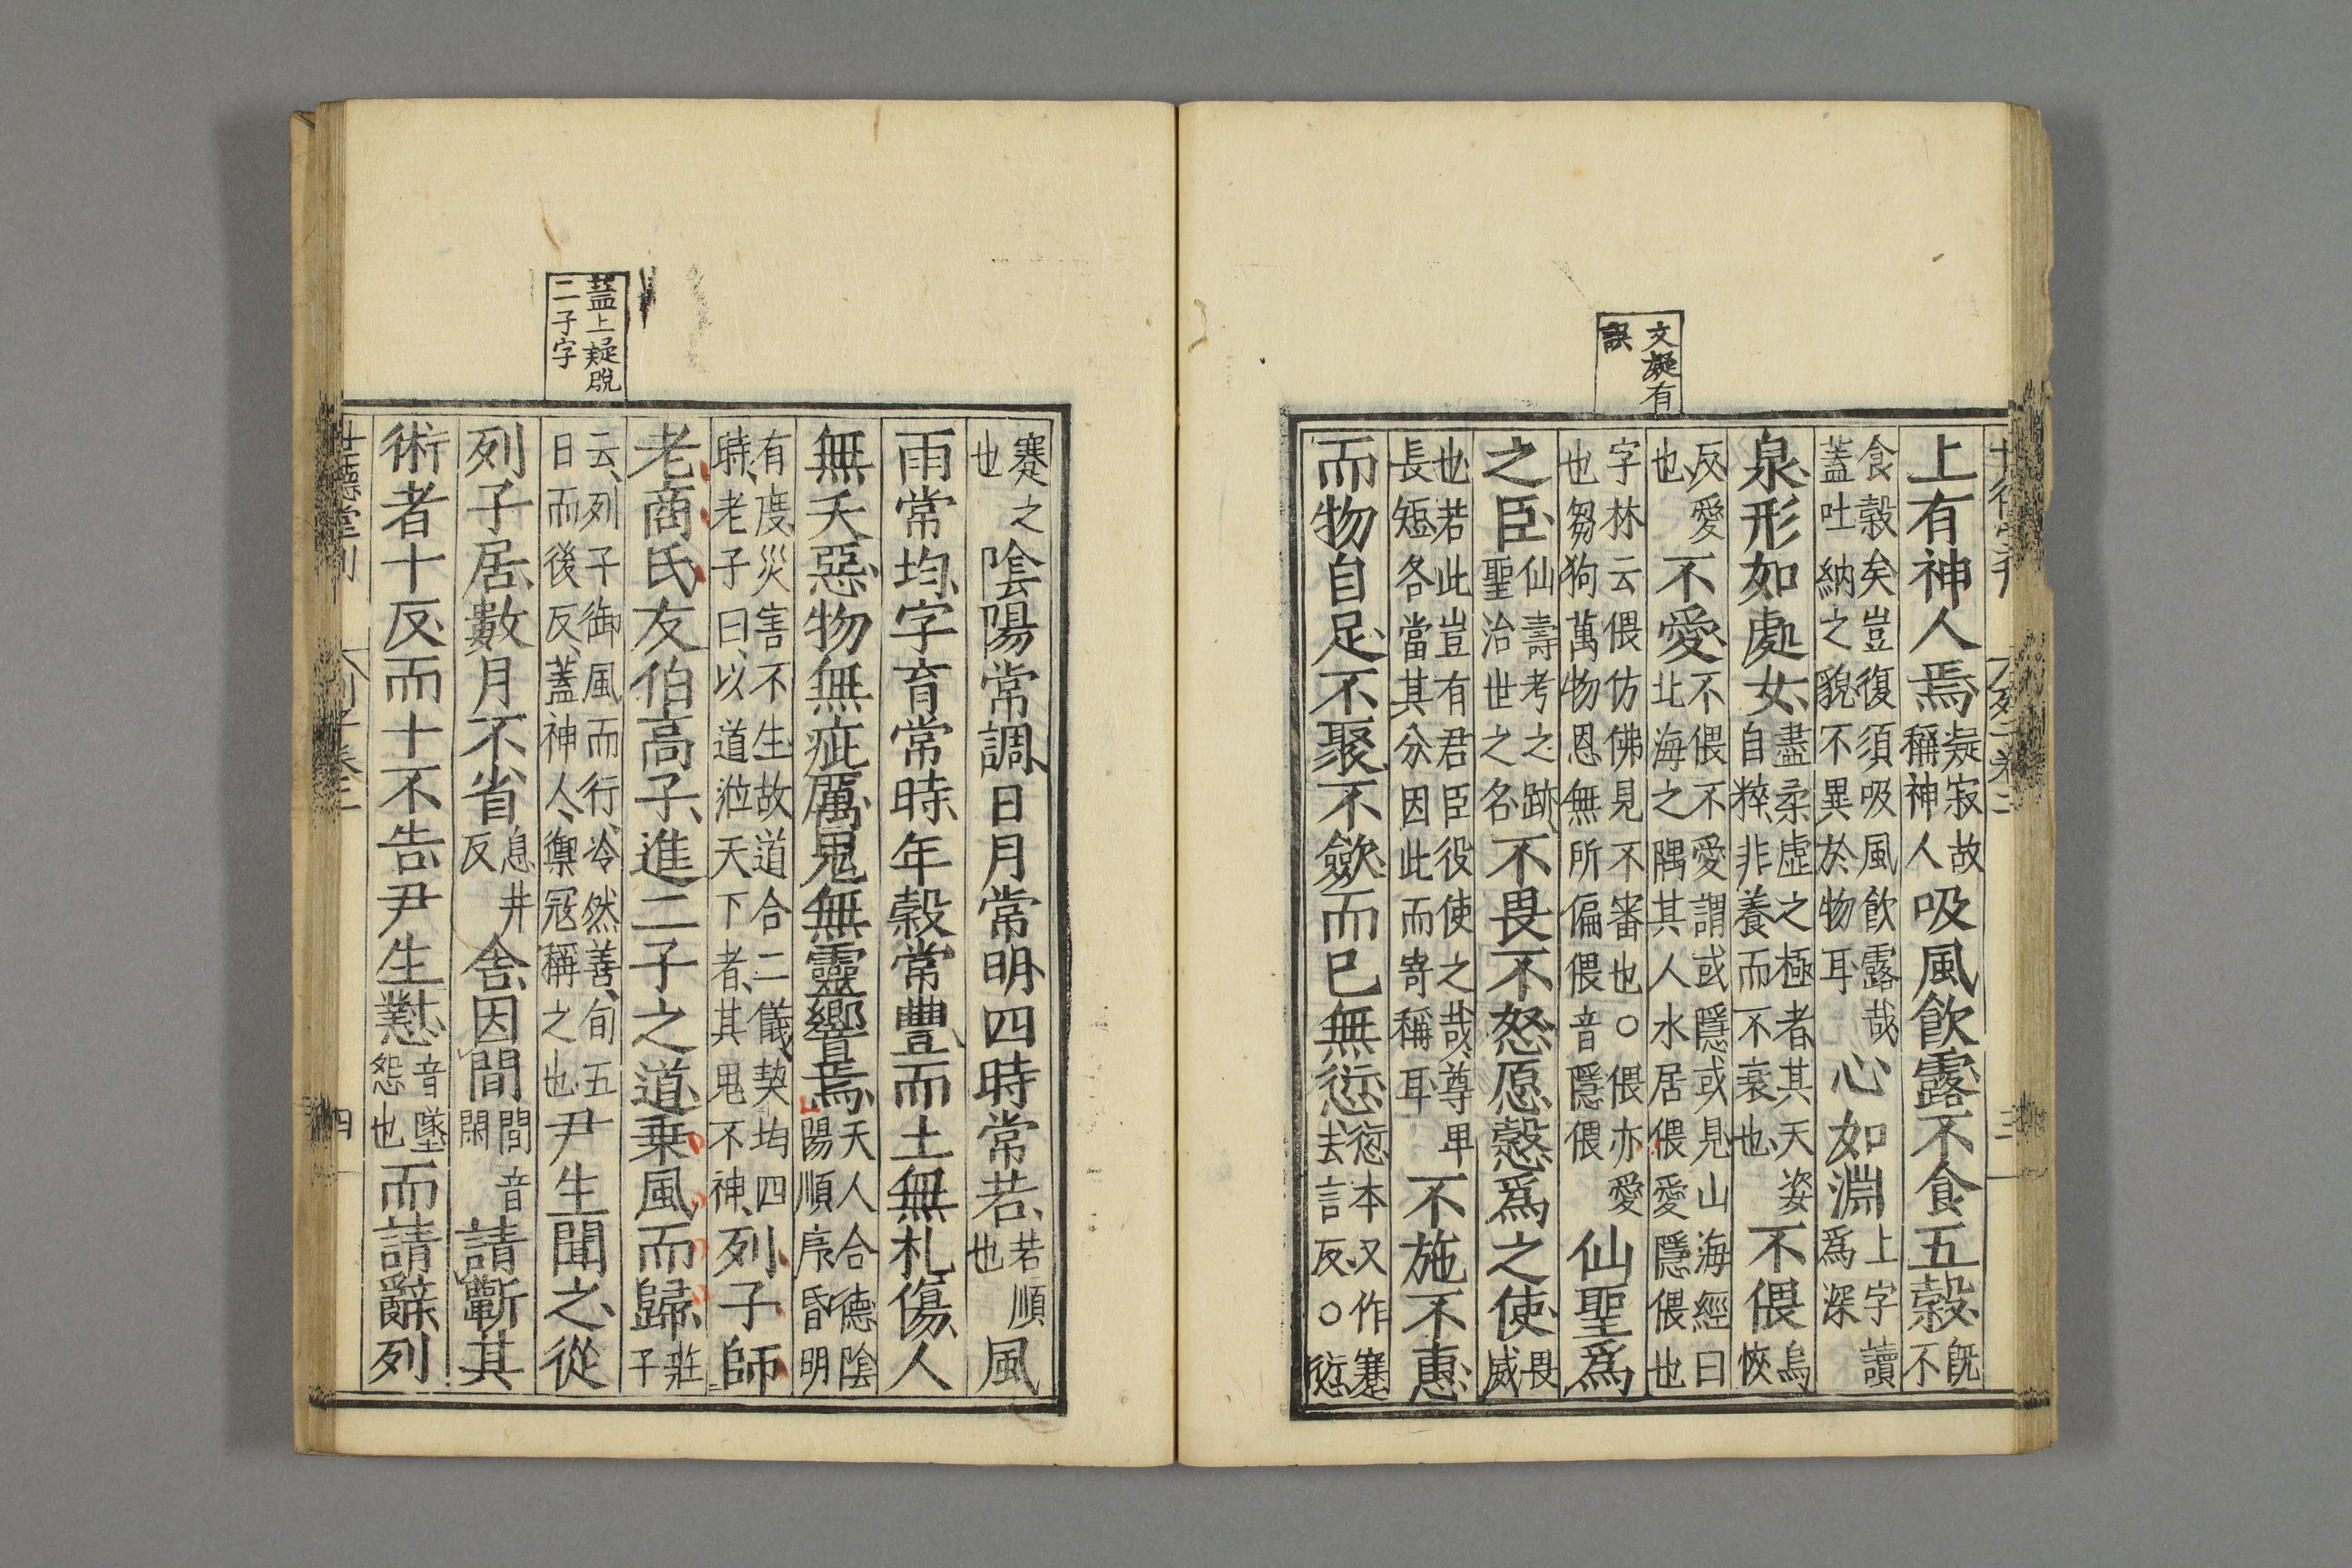 文疑有
誤
上有神人焉凝寂故稱神人吸風飲露不食五穀既不
食穀矣豈復須吸風飲露哉蓋吐納之貌不異於物耳心如淵上字讀爲深
泉形如處女盡柔虛之極者其天姿自粹非養而不衰也不偎烏恢
反愛也不愛不偎不愛謂或隱或見山海經曰北海之隅其人水居偎愛隱偎也
字林云偎仿佛見不審也○偎亦愛也芻狗萬物恩無所偏偎音隱偎仙聖爲
之臣仙壽考之跡聖治世之名不畏不怒愿慤爲之使畏威
也若此豈有君臣役使之哉尊卑長短各當其分因此而寄稱耳不施不惠
而物自足不聚不歛而已無愆愆本又作蹇去言反○愆
蹇之也陰陽常調日月常明四時常若若順也風
雨常均字育常時年穀常豐而土無札傷人
無夭惡物無疵厲鬼無靈響焉天人合德陰陽順序昏明
有度災害不生故道合二儀契均四時老子曰以道涖天下者其鬼不神列子師
蓋上疑脫
二子字
老商氏友伯高子進二子之道乗風而歸莊子
云列子御風而行泠然善旬五日而後反蓋神人禦寇稱之也尹生聞之從
列子居數月不省息井反舍因間間音閑請蘄其
術者十反而十不告尹生懟音墜怨也而請辭列
世德堂刊
列子卷二
四